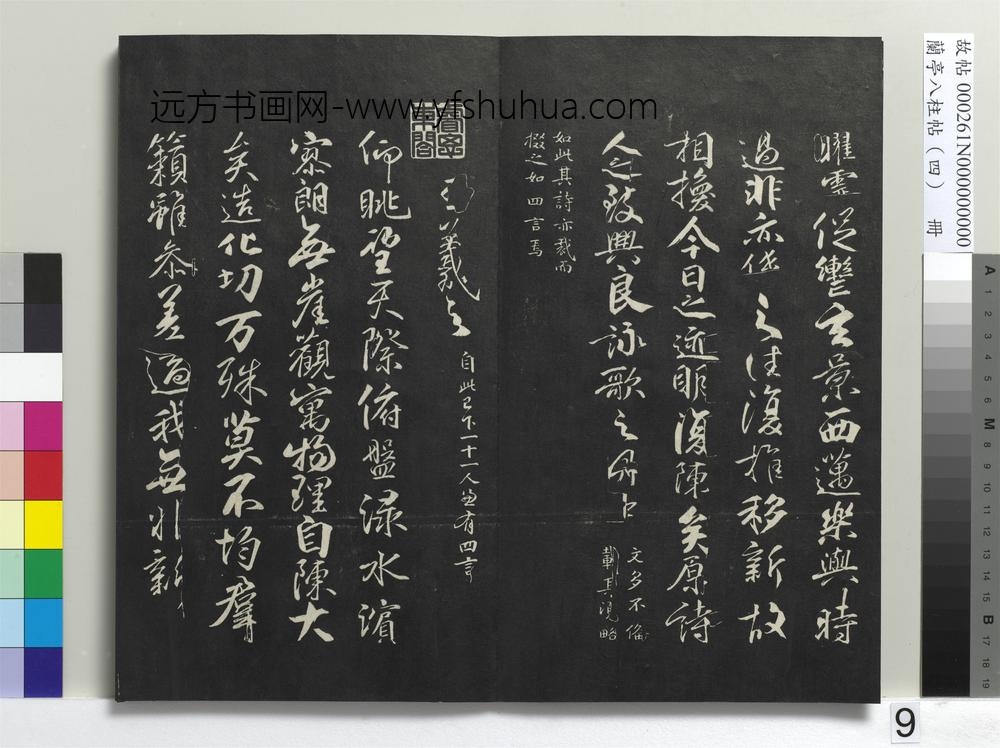 远方书画网-www.yfshuhua.com
曜靈促轡玄景西邁樂與時
過悲亦係之往復推移新故
相換今日之迹明復陳矣原詩
人之致興良詠歌之有由
文多不備
載其略
如此其詩亦裁而
掇之如四言焉
王羲之
自此已下一十一人並有四言
仰眺望天際俯盤淥水濱
寥朗無崖觀寓物理自陳大
矣造化功万殊莫不均群
籟雖參差適我無非新
故帖 000261N000000000000
蘭亭八柱帖（四） 冊
A 1 2 3 4 5 6 M 8 9 10 11 12 13 14 15 B 17 18 19
9